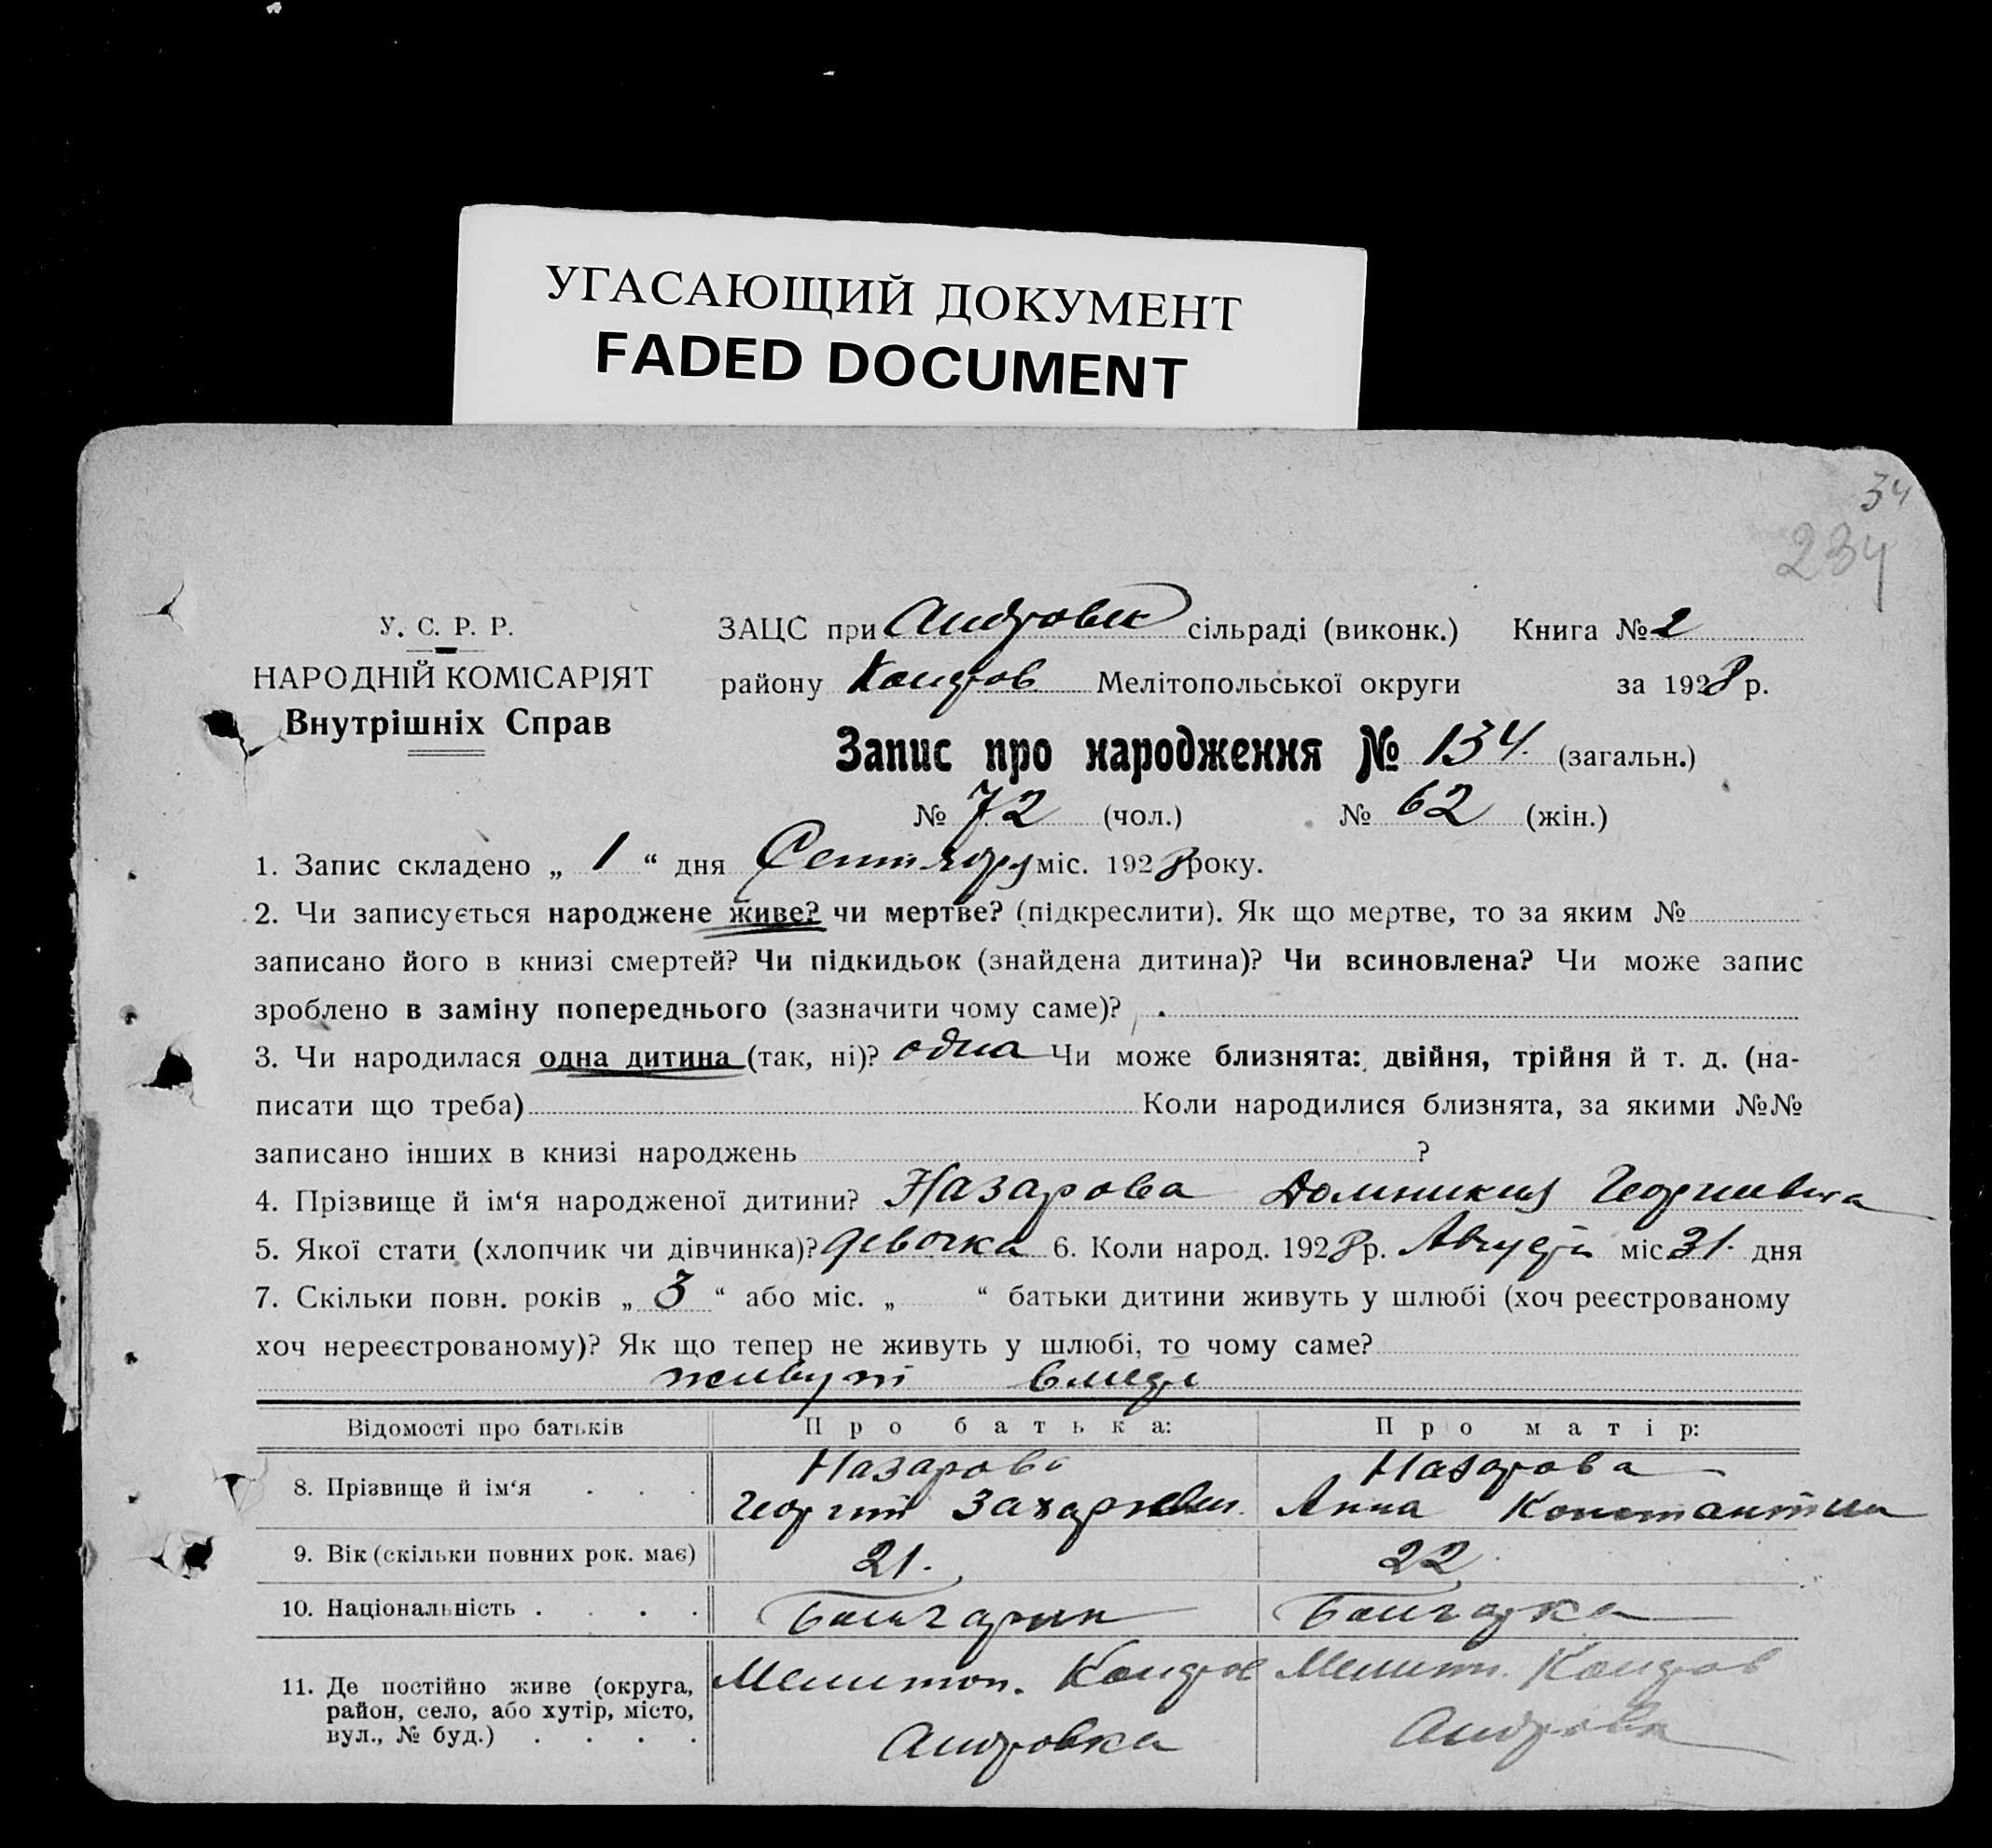 УГАСАЮЩИЙ ДОКУМЕНТ
FADED DOCUMENT
34
234
У. С. Р. Р.
НАРОДНІЙ КОМІСАРІЯТ
Внутрішніх Справ
ЗАЦС при Андровск сільраді (виконк.) Книга № 2
району Мелітопольської округи за 1928 р.
Запис про народження № 134. (загальн.)
№ 72 (чол.) № 62 (жін.)
1. Запис складено „ 1 “ дня Сентября міс. 1928 року.
2. Чи записується народжене живе? чи мертве? (підкреслити). Як що мертве, то за яким №
записано його в книзі смертей? Чи підкидьок (знайдена дитина)? Чи всиновлена? Чи може запис
зроблено в заміну попереднього (зазначити чому саме)?
3. Чи народилася одна дитина (так, ні)? одна Чи може близнята: двійня, трійня й т. д. (на-
писати що треба) Коли народилися близнята, за якими №№
записано інших в книзі народжень ?
4. Прізвище й ім‘я народженої дитини? Назарова Домникия Георгиевна
5. Якої стати (хлопчик чи дівчинка)? девочка 6. Коли народ. 1928 р. Август міс 31. дня
7. Скільки повн. років „ 3 “ або міс. „ “ батьки дитини живуть у шлюбі (хоч реєстрованому
хоч нереєстрованому)? Як що тепер не живуть у шлюбі, то чому саме?
живут
Відомості про батьків Про батька: Про матір:
8. Прізвище й ім‘я . . . Назаров Назарова
Георгий Захарьевич. Анна Константин
9. Вік (скільки повних рок. має) 21. 22
10. Національність . . . . Болгарин Болгарка
11. Де постійно живе (округа, район, село, або хутір, місто, вул., № буд.) . . . . Мелитоп. Мелитп.
Андровка